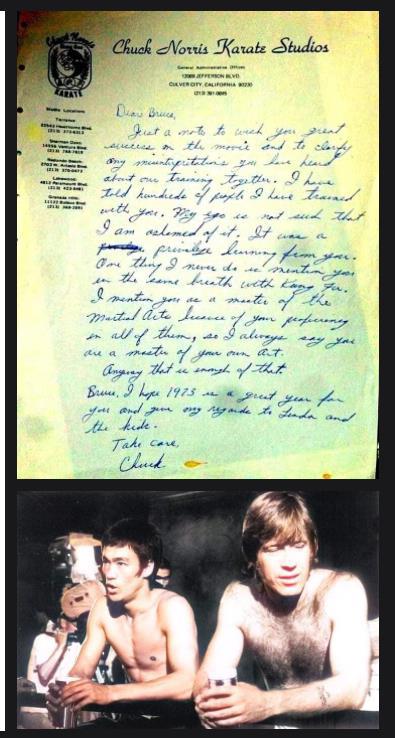 Chuck Norris
KARATE
Chuck Norris Karate Studios
General Administrative Offices
JEFFERSON BLVD.
CULVER CITY, CALIFORNIA 90230
(213)
Studio Locations
Torrance
Sherman Oaks
Redondo Beach
Lakewood
Granada Hills
Dear Bruce,
Just a note to wish you great
success on the movie and to clarify
any misinterpretations you have heard
about our training together. I have
told hundreds of people I have trained
with you. My ego is not such that
I am ashamed of it. It was a
privilege learning from you.
One thing I never do is mention you
in the same breath with Kung Fu.
I mention you as a master of the
Martial Arts because of your proficiency
in all of them, so I always say you
are a master of your own Art.
Anyway that is enough of that.
Bruce, I hope 1973 is a great year for
you and give my regards to Linda and
the kids.
Take care,
Chuck